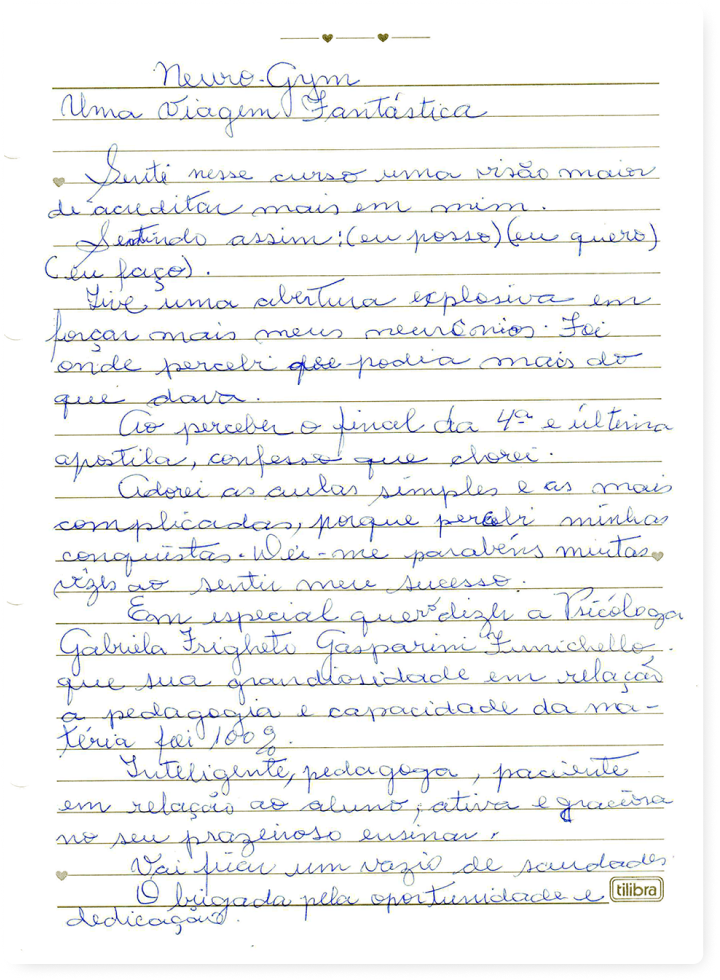 Neuro-Gym
Uma Viagem Fantástica
Senti nesse curso uma visão maior
de acreditar mais em mim.
Sentindo assim: (eu posso) (eu quero)
(eu faço).
Tive uma abertura explosiva em
forçar mais meus neurônios. Foi
onde percebi que podia mais do
que dava.
Ao perceber o final da 4ª e última
apostila, confesso que chorei.
Adorei as aulas simples e as mais
complicadas, porque percebi minhas
conquistas. Dei-me parabéns muitas
vezes ao sentir meu sucesso.
Em especial quero dizer a Psicóloga
Gabriela Frigheto Gasparini Fumichello.
que sua grandiosidade em relação
a pedagogia e capacidade da ma-
téria foi 100%.
Inteligente, pedagoga, paciente
em relação ao aluno, ativa e graciosa
no seu prazeiroso ensinar.
Vai ficar um vazio de saudades.
Obrigada pela oportunidade e
dedicação.
tilibra